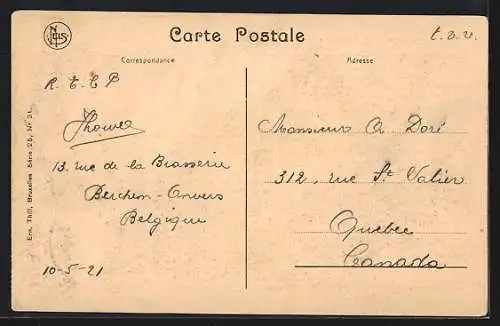 Carte Postale
t.s.v.
Correspondance
Adresse
R. t. C P
13. rue de la Brasserie
Berchem-Anvers
Belgique
10-5-21
Monsieur A. Doré
312, rue St Valier
Quebec
Canada
Ern. Thill, Bruxelles Série 25, No 21.